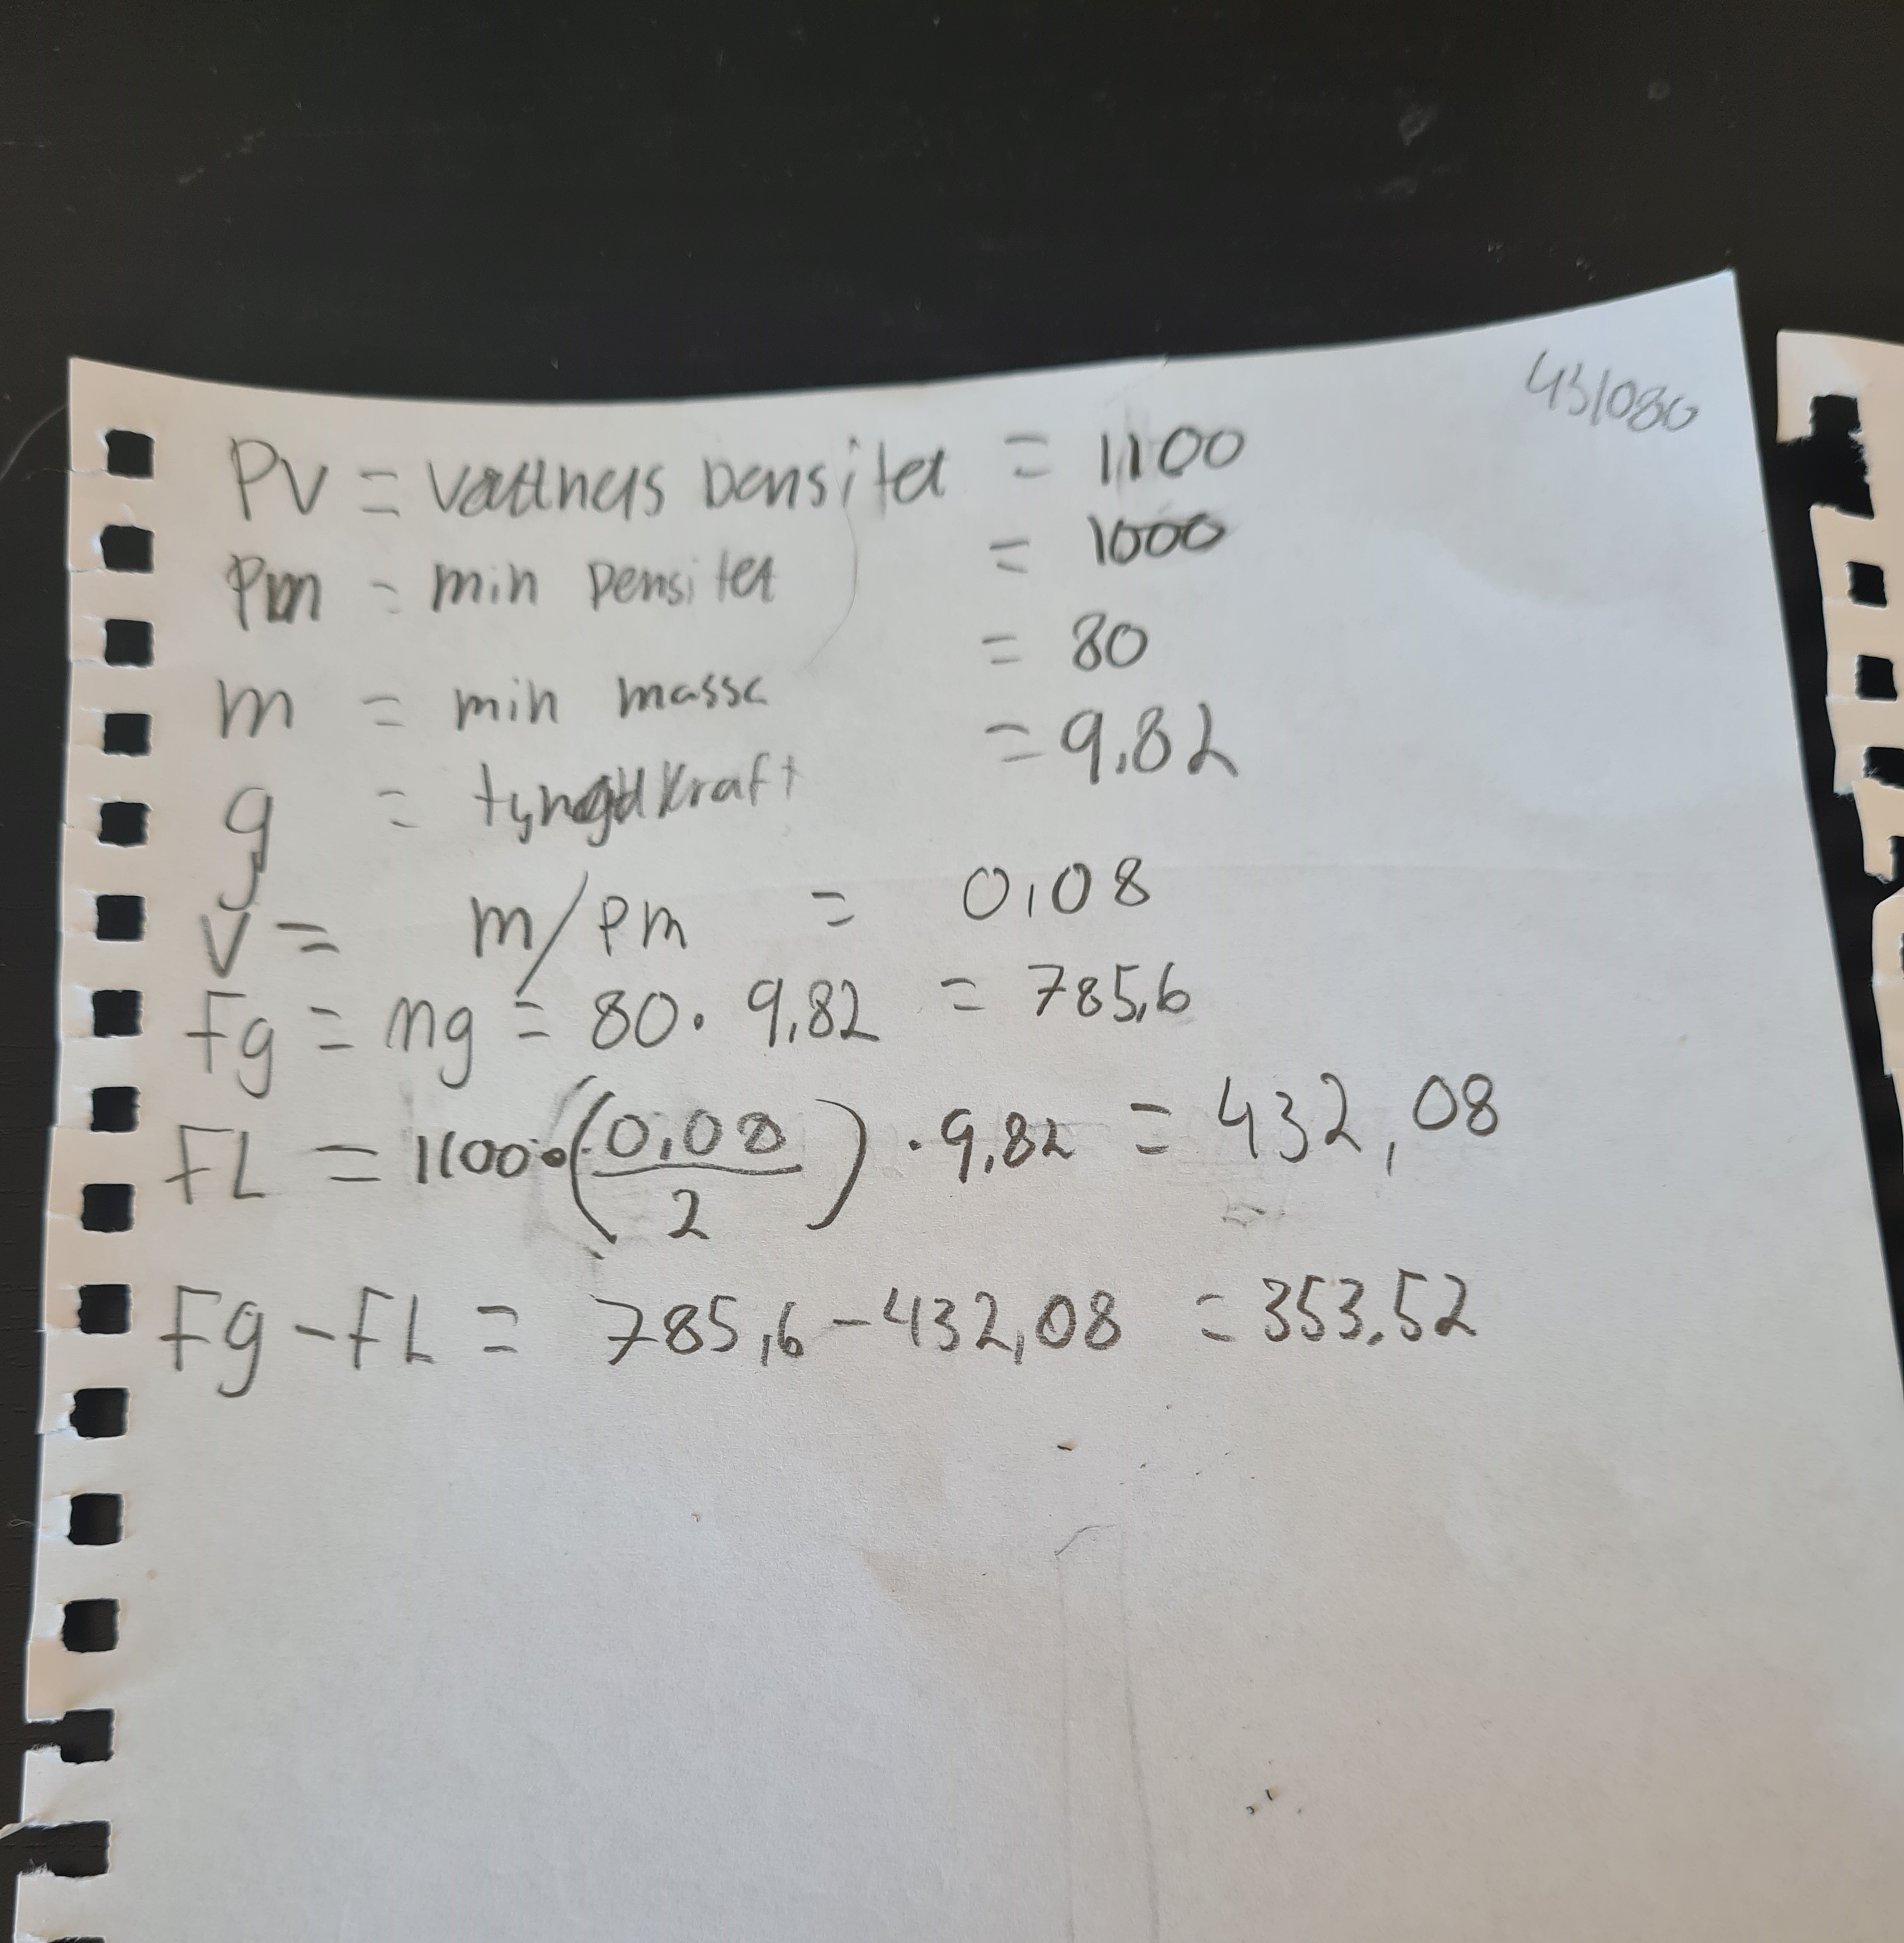 431080
PV = vattnets Densitet = 1100
Pm = min Densitet = 1000
m = min massa = 80
g = tyngdkraft = 9,82
V = m/pm = 0,08
Fg = mg = 80 · 9,82 = 785,6
FL = 1100 · (0,08/2) · 9,82 = 432,08
Fg - FL = 785,6 - 432,08 = 353,52